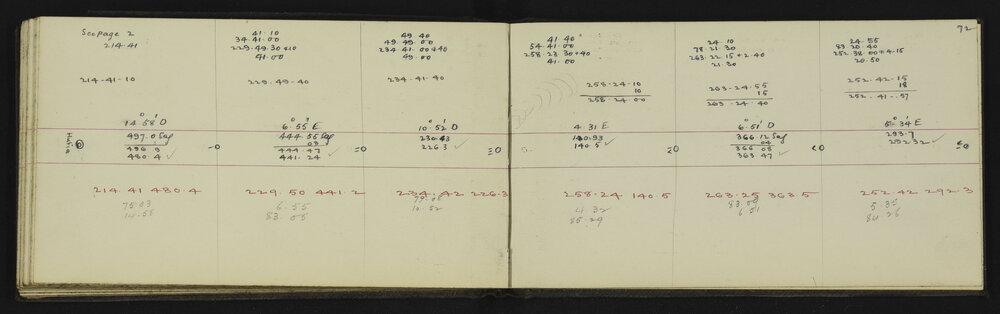 See page 2
214.41
41.10
34.41.00
229.49.30 +10
41.00
49 40
49.49.00
234.41.00 +40
49.00
41 40
54.41.00
258.23.30 +40
41.00
24 10
78.21 30
263.22 15 + 2.40
21.30
24 55
83 20 40
252.38 00 + 4.15
20.50
72
214-41-10
229.49-40
234.41.40
258-24-10
10
258.24.00
263-24.55
15
263.24.40
252.42.15
18
252.41.57
14° 58' D
6.55 E
10° 52' D
4.31 E
6° 51' D
5° 34' E
497.0 Sag
496 9
480.4
444.55 Sag
08
444.47
441.24
230.43
226.3
140.93
140.5
366.12 Sag
04
366 08
363.47
293.7
292.32
214.41 480.4
229.50 441.2
234.42 226.3
258.24 140.5
263.25 363.5
252.42 292.3
75.03
14.58
6.55
83.05
79.08
10.52
4 32
85.29
83.09
6 51
5.35
84.26